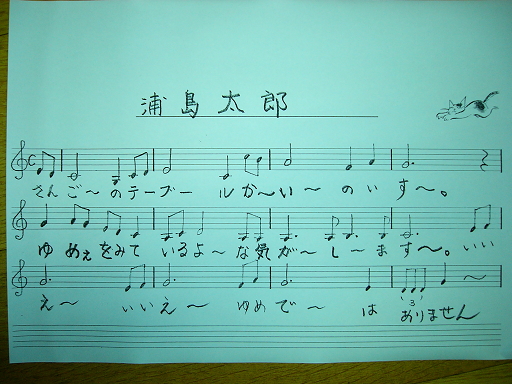 浦島太郎
さんご〜のテーブールか〜い〜のいす〜。
ゆめぇをみているよ〜な気が〜し〜ます〜。いい
え〜いいえ〜ゆめで〜はありません